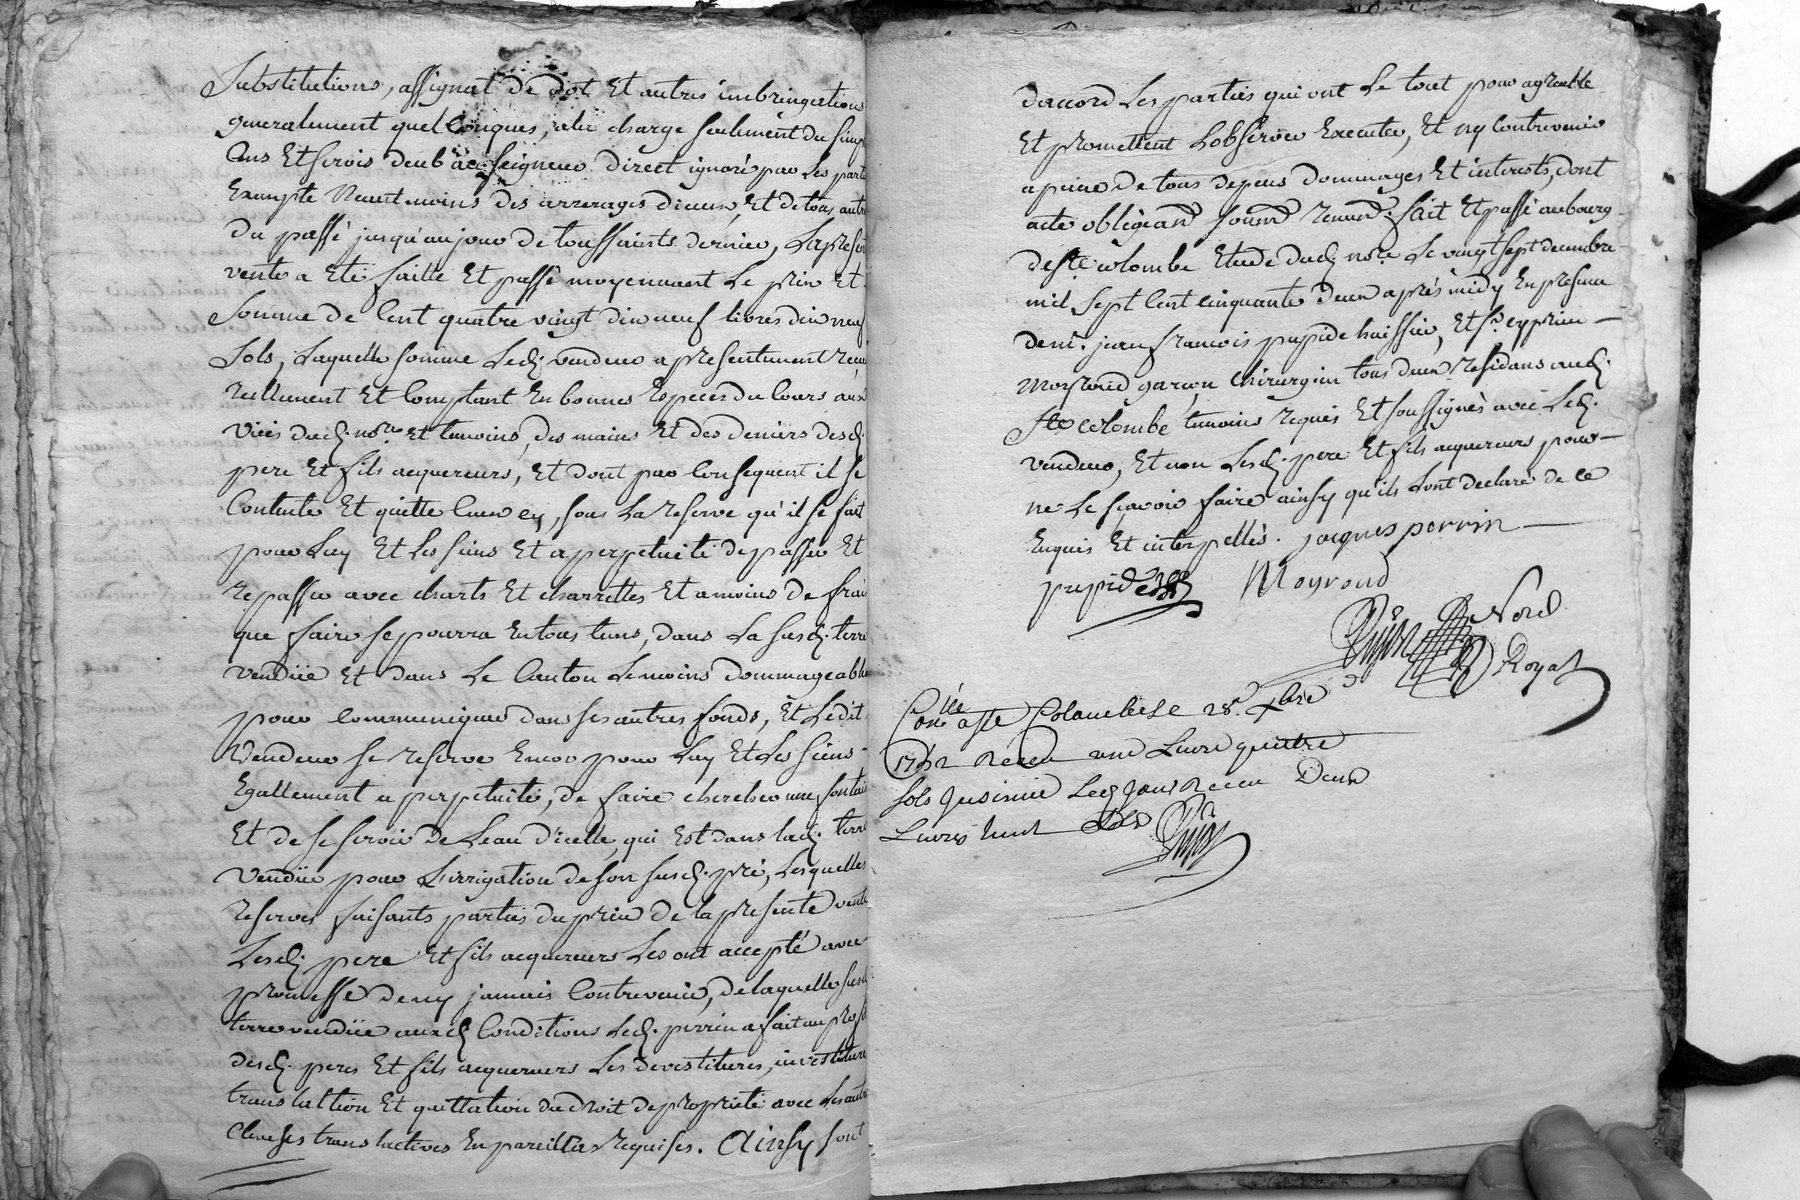 Substitutions, assignat de dot Et autres imbringations
generalement quelconques, ala charge seulement du simp
Cens Et servis deub au seigneur direct ignoré par Les part
Exempte Neantmoins des arrerages diceux, Et de tous autr
du passé jusqu'au jour de toussaints dernier, La presen
vente a Eté faitte Et passé moyennant Le prix Et
Somme de Cent quatre vingt dix neuf livres dix neuf
Sols, Laquelle somme Ledt. vendeur a presentement receu
reellement Et Comptant En bonnes Especes du Cours aux
vües dudt. nore. Et temoins, des mains Et des deniers desdt.
pere Et fils acquereurs, Et dont par Consequent il se
Contente Et quitte Sous La reserve qu'il se fait
pour Luy Et Les siens Et a perpetuité de passer Et
repasser avec charts Et charrettes Et a moins de frais
que faire se pourra En tous tems, dans La susdt. terre
vendüe Et dans Le Canton Le moins dommageable
pour communiquer dans ses autres fonds, Et Ledit
Vendeur se reserve Encor pour Luy Et Les siens
Egallement a perpetuité, de faire chercher une fontain
Et de se servir de Leau d'icelle, qui Est dans ladt. terre
Vendüe pour L'irrigation de son susdt. pré, Lesquelles
reserves faisants parties du prix de la presente vente
Lesdt. pere Et fils acquereurs Les ont accepté avec
promesse de ny jamais Contrevenir, de laquelle susdt
terre vendüe auxdt Conditions Ledt. perrin a fait au profit
desdt. peres Et fils acquereurs Les devestitures, investiture
translattion Et quittation du droit de proprieté avec Les autre
Clauses translatives En pareil Cas requises. Ainsy sont
daccord Les parties qui ont Le tout pour agreable
Et promettent L'observer Executer, Et ny Contrevenir
a peine de tous depens dommages Et interests, dont
acte obligeant soumt. renonct. fait Et passé au bourg
de ste. colombe Etude dudt nore. Le vingt sept decembre
mil sept Cent cinquante deux après midy En presence
de mr. jean francois pupide huissier, Et sr. cyprien
Moyroud garçon chirurgien tous deux residans audt.
ste colombe temoins requis Et soussignés avec Ledt.
vendeur, Et non Lesdt. pere Et fils acquereurs pour
ne Le sçavoir faire ainsy qu'ils ont declaré de ce
Enquis Et interpellés. jacques perrin
pupide Moyroud
Pujon Nore
Royal
Conllé a Ste Colombe Le 28. xbre
1752 Receu une Livre quattre
sols Ledt jour Receu Deux
Livres huit sols Pujon